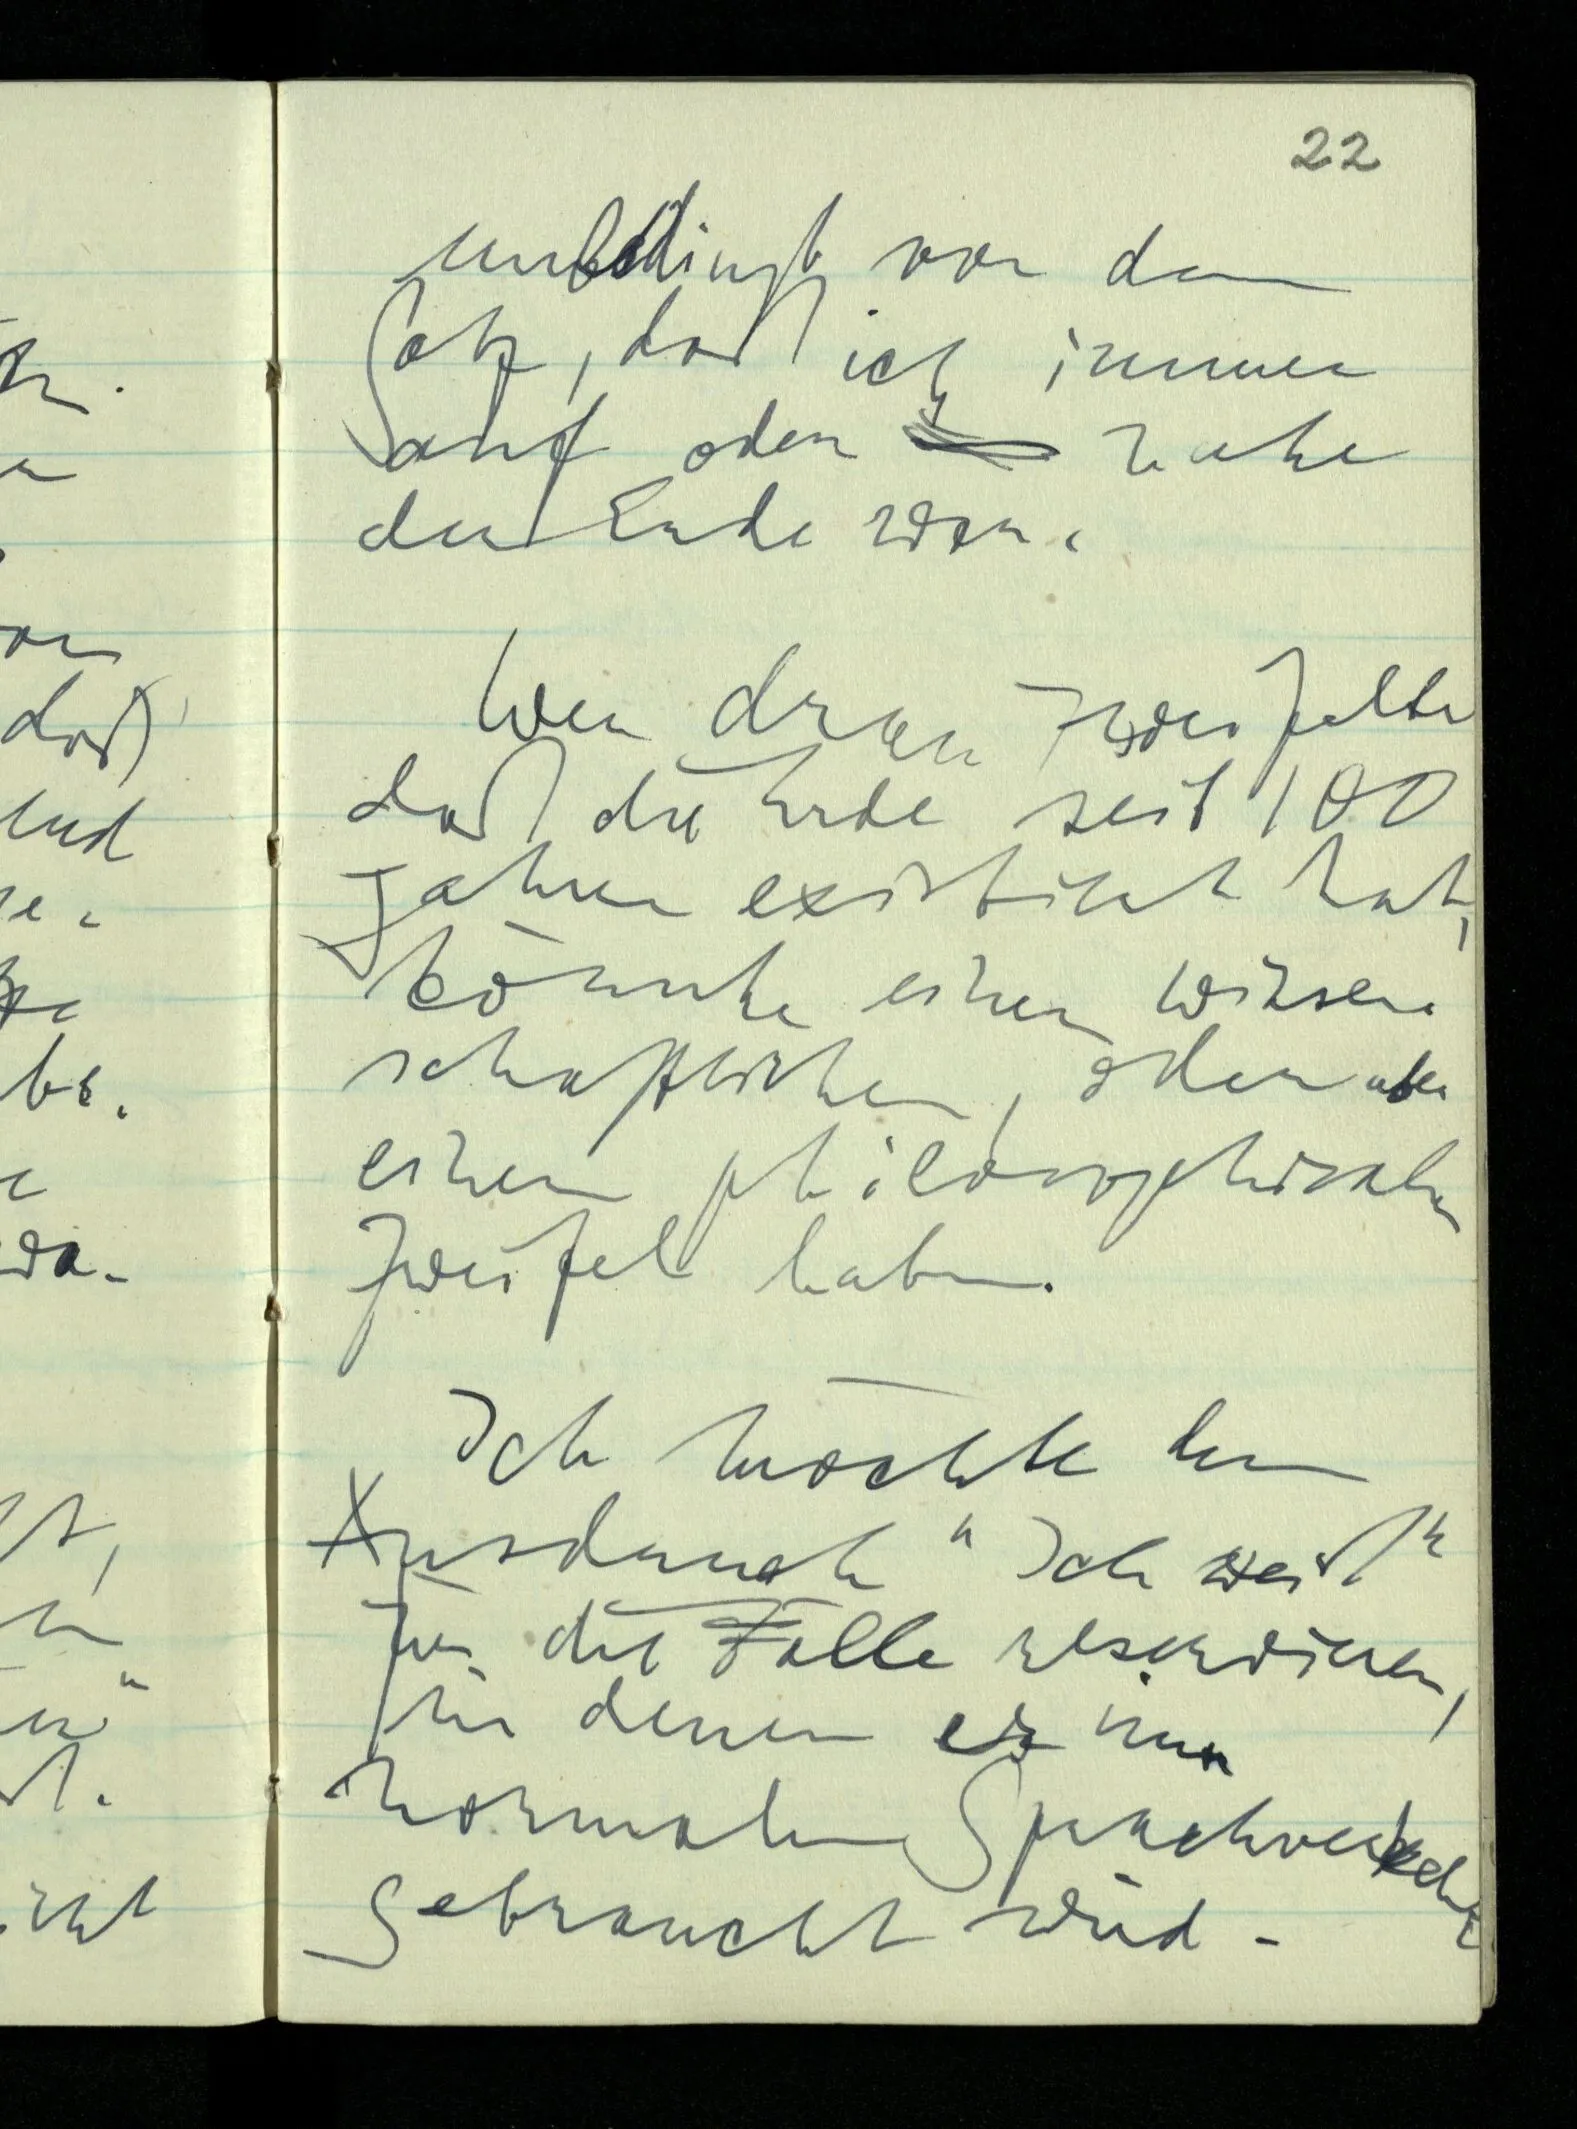 22
unbedingt von dem
Satz, daß ich immer
auf oder nahe
der Erde war.
Wer dran zweifelte
daß die Erde seit 100
Jahren existiert hat,
könnte einen wissen
schaftlichen, oder aber
einen philosophischen
Zweifel haben.
Ich möchte den
Ausdruck "Ich weiß"
für die Fälle reservieren,
in denen er im
normalen Sprachverkehr
gebraucht wird.